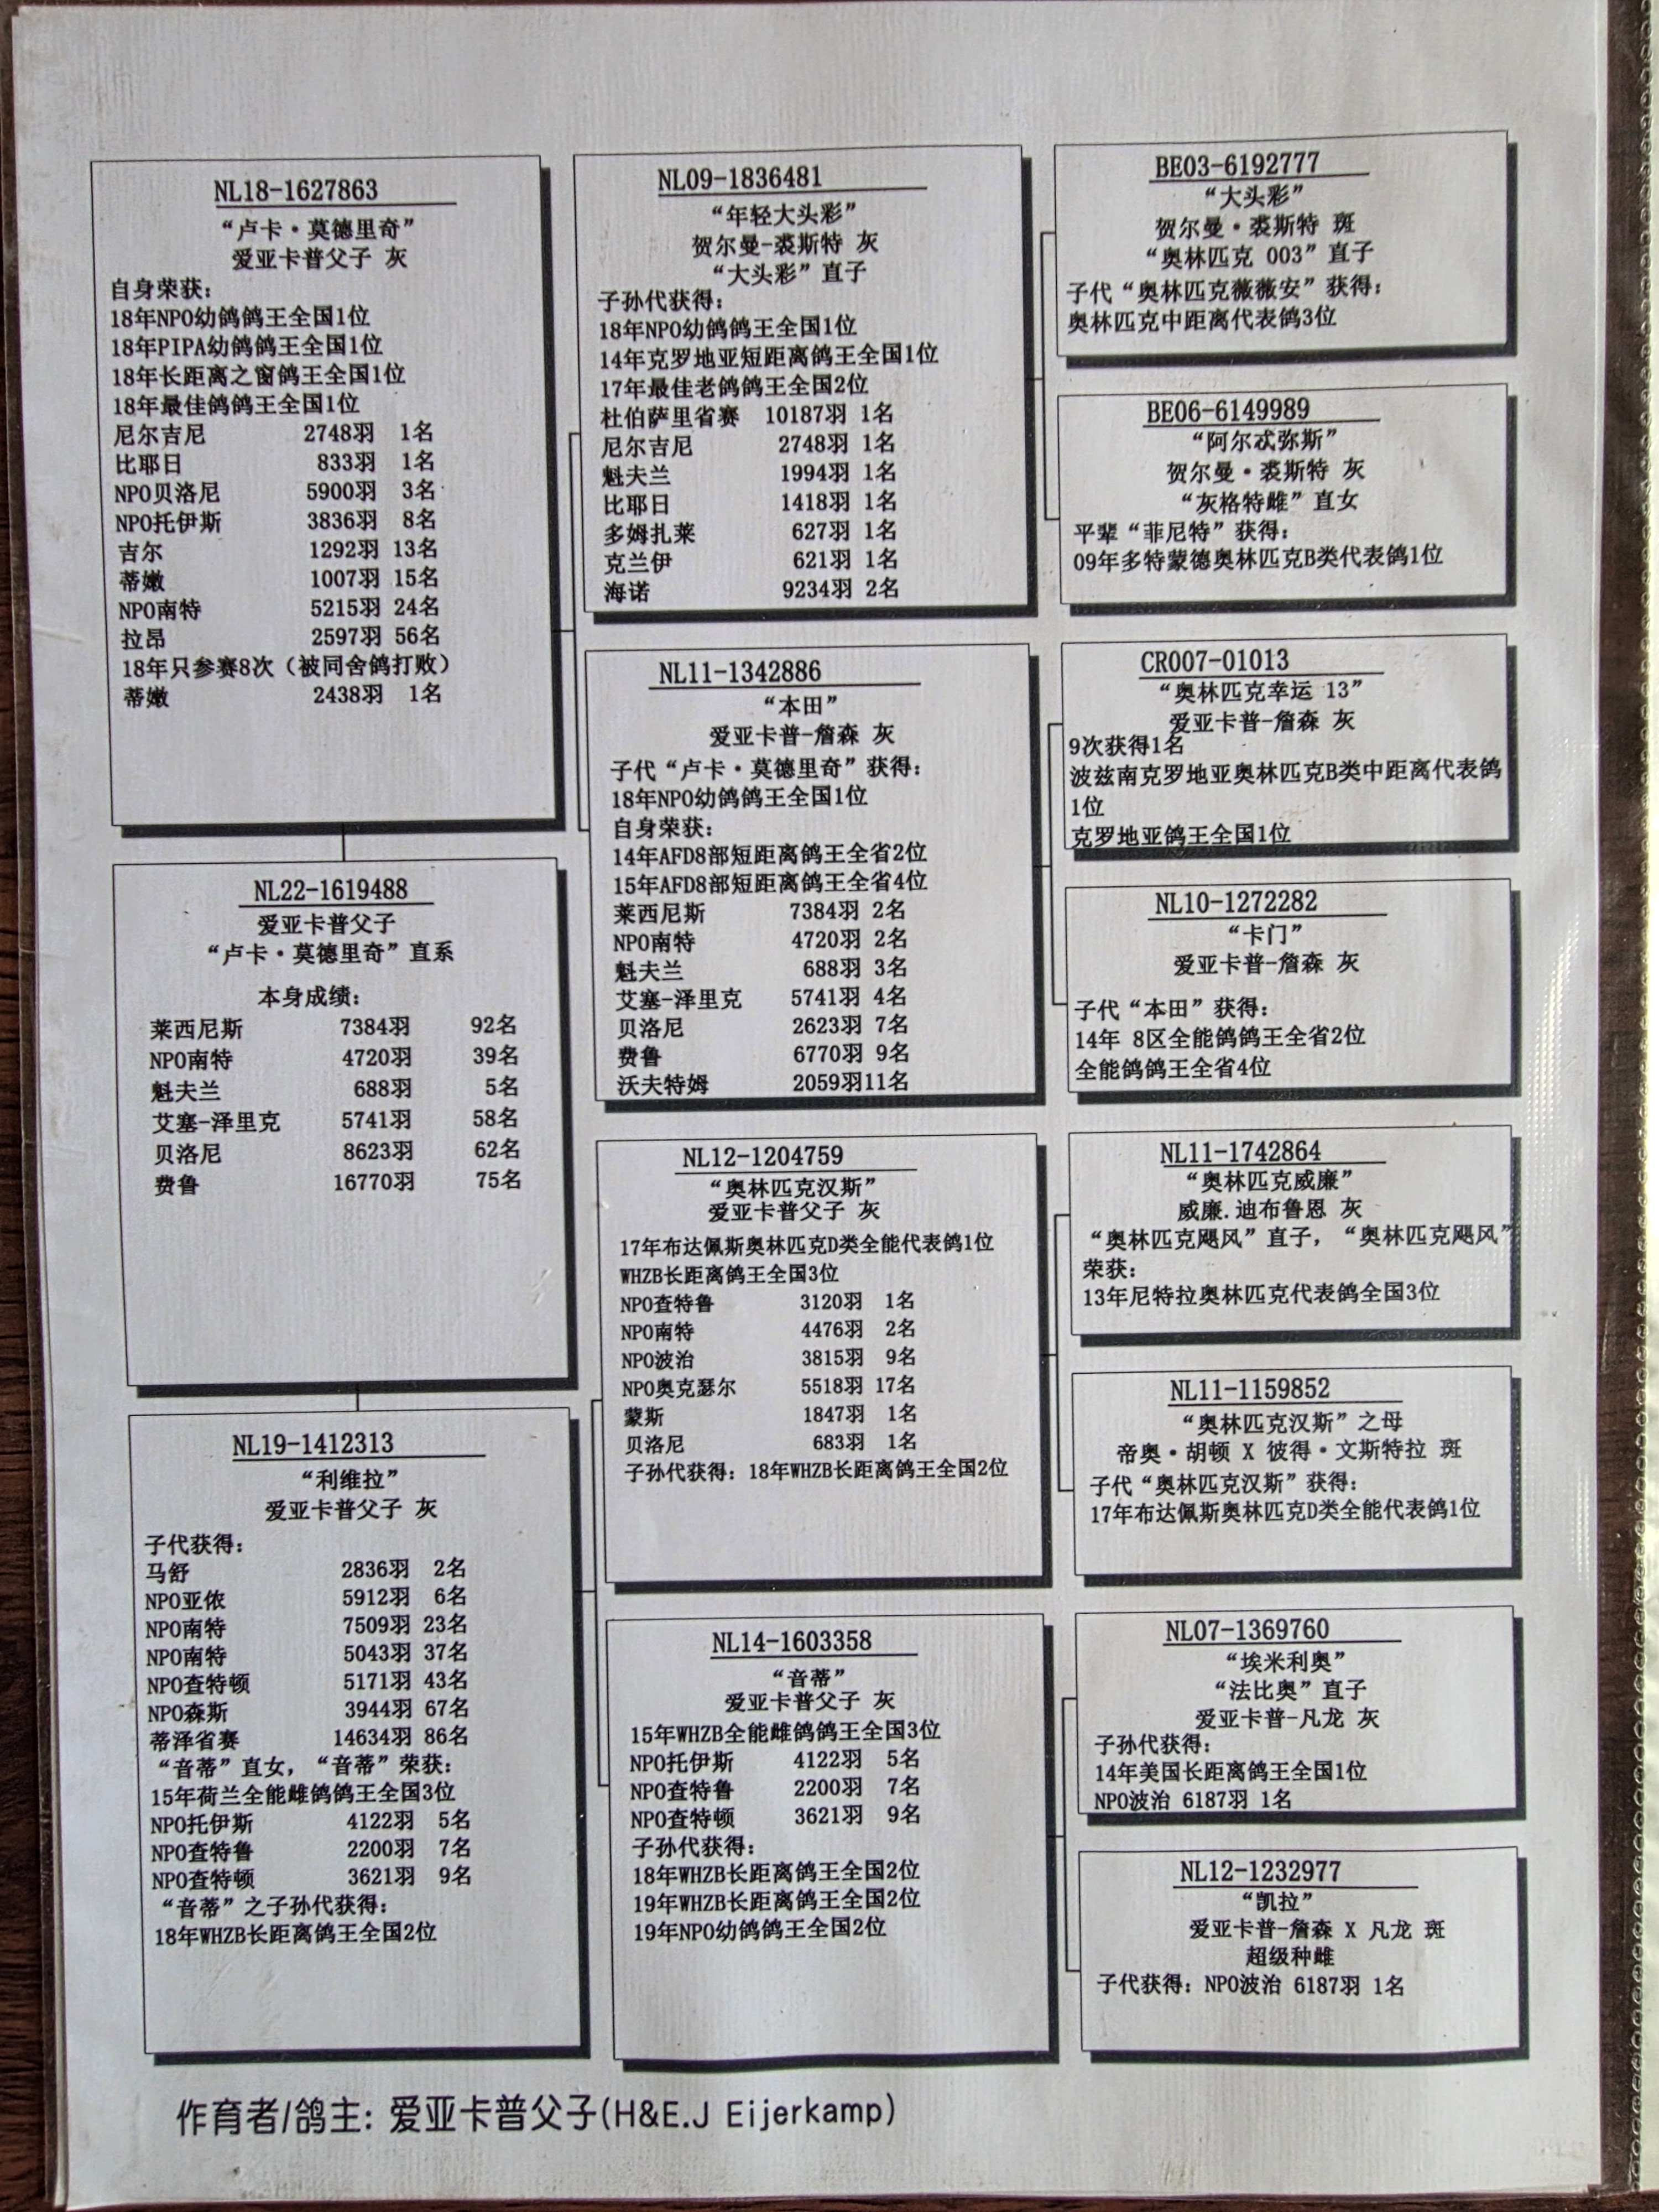 NL18-1627863
“卢卡·莫德里奇”
爱亚卡普父子 灰
自身荣获:
18年NPO幼鸽鸽王全国1位
18年PIPA幼鸽鸽王全国1位
18年长距离之窗鸽王全国1位
18年最佳鸽鸽王全国1位
尼尔吉尼 2748羽 1名
比耶日 833羽 1名
NPO贝洛尼 5900羽 3名
NPO托伊斯 3836羽 8名
吉尔 1292羽 13名
蒂嫩 1007羽 15名
NPO南特 5215羽 24名
拉昂 2597羽 56名
18年只参赛8次（被同舍鸽打败）
蒂嫩 2438羽 1名
NL22-1619488
爱亚卡普父子
“卢卡·莫德里奇”直系
本身成绩:
莱西尼斯 7384羽 92名
NPO南特 4720羽 39名
魁夫兰 688羽 5名
艾塞-泽里克 5741羽 58名
贝洛尼 8623羽 62名
费鲁 16770羽 75名
NL19-1412313
“利维拉”
爱亚卡普父子 灰
子代获得:
马舒 2836羽 2名
NPO亚侬 5912羽 6名
NPO南特 7509羽 23名
NPO南特 5043羽 37名
NPO查特顿 5171羽 43名
NPO森斯 3944羽 67名
蒂泽省赛 14634羽 86名
“音蒂”直女，“音蒂”荣获:
15年荷兰全能雌鸽鸽王全国3位
NPO托伊斯 4122羽 5名
NPO查特鲁 2200羽 7名
NPO查特顿 3621羽 9名
“音蒂”之子孙代获得:
18年WHZB长距离鸽王全国2位
NL09-1836481
“年轻大头彩”
贺尔曼-裘斯特 灰
“大头彩”直子
子孙代获得:
18年NPO幼鸽鸽王全国1位
14年克罗地亚短距离鸽王全国1位
17年最佳老鸽鸽王全国2位
杜伯萨里省赛 10187羽 1名
尼尔吉尼 2748羽 1名
魁夫兰 1994羽 1名
比耶日 1418羽 1名
多姆扎莱 627羽 1名
克兰伊 621羽 1名
海诺 9234羽 2名
NL11-1342886
“本田”
爱亚卡普-詹森 灰
子代“卢卡·莫德里奇”获得:
18年NPO幼鸽鸽王全国1位
自身荣获:
14年AFD8部短距离鸽王全省2位
15年AFD8部短距离鸽王全省4位
莱西尼斯 7384羽 2名
NPO南特 4720羽 2名
魁夫兰 688羽 3名
艾塞-泽里克 5741羽 4名
贝洛尼 2623羽 7名
费鲁 6770羽 9名
沃夫特姆 2059羽11名
NL12-1204759
“奥林匹克汉斯”
爱亚卡普父子 灰
17年布达佩斯奥林匹克D类全能代表鸽1位
WHZB长距离鸽王全国3位
NPO查特鲁 3120羽 1名
NPO南特 4476羽 2名
NPO波治 3815羽 9名
NPO奥克瑟尔 5518羽 17名
蒙斯 1847羽 1名
贝洛尼 683羽 1名
子孙代获得: 18年WHZB长距离鸽王全国2位
NL14-1603358
“音蒂”
爱亚卡普父子 灰
15年WHZB全能雌鸽鸽王全国3位
NPO托伊斯 4122羽 5名
NPO查特鲁 2200羽 7名
NPO查特顿 3621羽 9名
子孙代获得:
18年WHZB长距离鸽王全国2位
19年WHZB长距离鸽王全国2位
19年NPO幼鸽鸽王全国2位
BE03-6192777
“大头彩”
贺尔曼·裘斯特 斑
“奥林匹克 003”直子
子代“奥林匹克薇薇安”获得:
奥林匹克中距离代表鸽3位
BE06-6149989
“阿尔忒弥斯”
贺尔曼·裘斯特 灰
“灰格特雌”直女
平辈“菲尼特”获得:
09年多特蒙德奥林匹克B类代表鸽1位
CRO07-01013
“奥林匹克幸运 13”
爱亚卡普-詹森 灰
9次获得1名
波兹南克罗地亚奥林匹克B类中距离代表鸽
1位
克罗地亚鸽王全国1位
NL10-1272282
“卡门”
爱亚卡普-詹森 灰
子代“本田”获得:
14年 8区全能鸽鸽王全省2位
全能鸽鸽王全省4位
NL11-1742864
“奥林匹克威廉”
威廉.迪布鲁恩 灰
“奥林匹克飓风”直子，“奥林匹克飓风”
荣获:
13年尼特拉奥林匹克代表鸽全国3位
NL11-1159852
“奥林匹克汉斯”之母
帝奥·胡顿 X 彼得·文斯特拉 斑
子代“奥林匹克汉斯”获得:
17年布达佩斯奥林匹克D类全能代表鸽1位
NL07-1369760
“埃米利奥”
“法比奥”直子
爱亚卡普-凡龙 灰
子孙代获得:
14年美国长距离鸽王全国1位
NPO波治 6187羽 1名
NL12-1232977
“凯拉”
爱亚卡普-詹森 X 凡龙 斑
超级种雌
子代获得: NPO波治 6187羽 1名
作育者/鸽主: 爱亚卡普父子(H&E.J Eijerkamp)